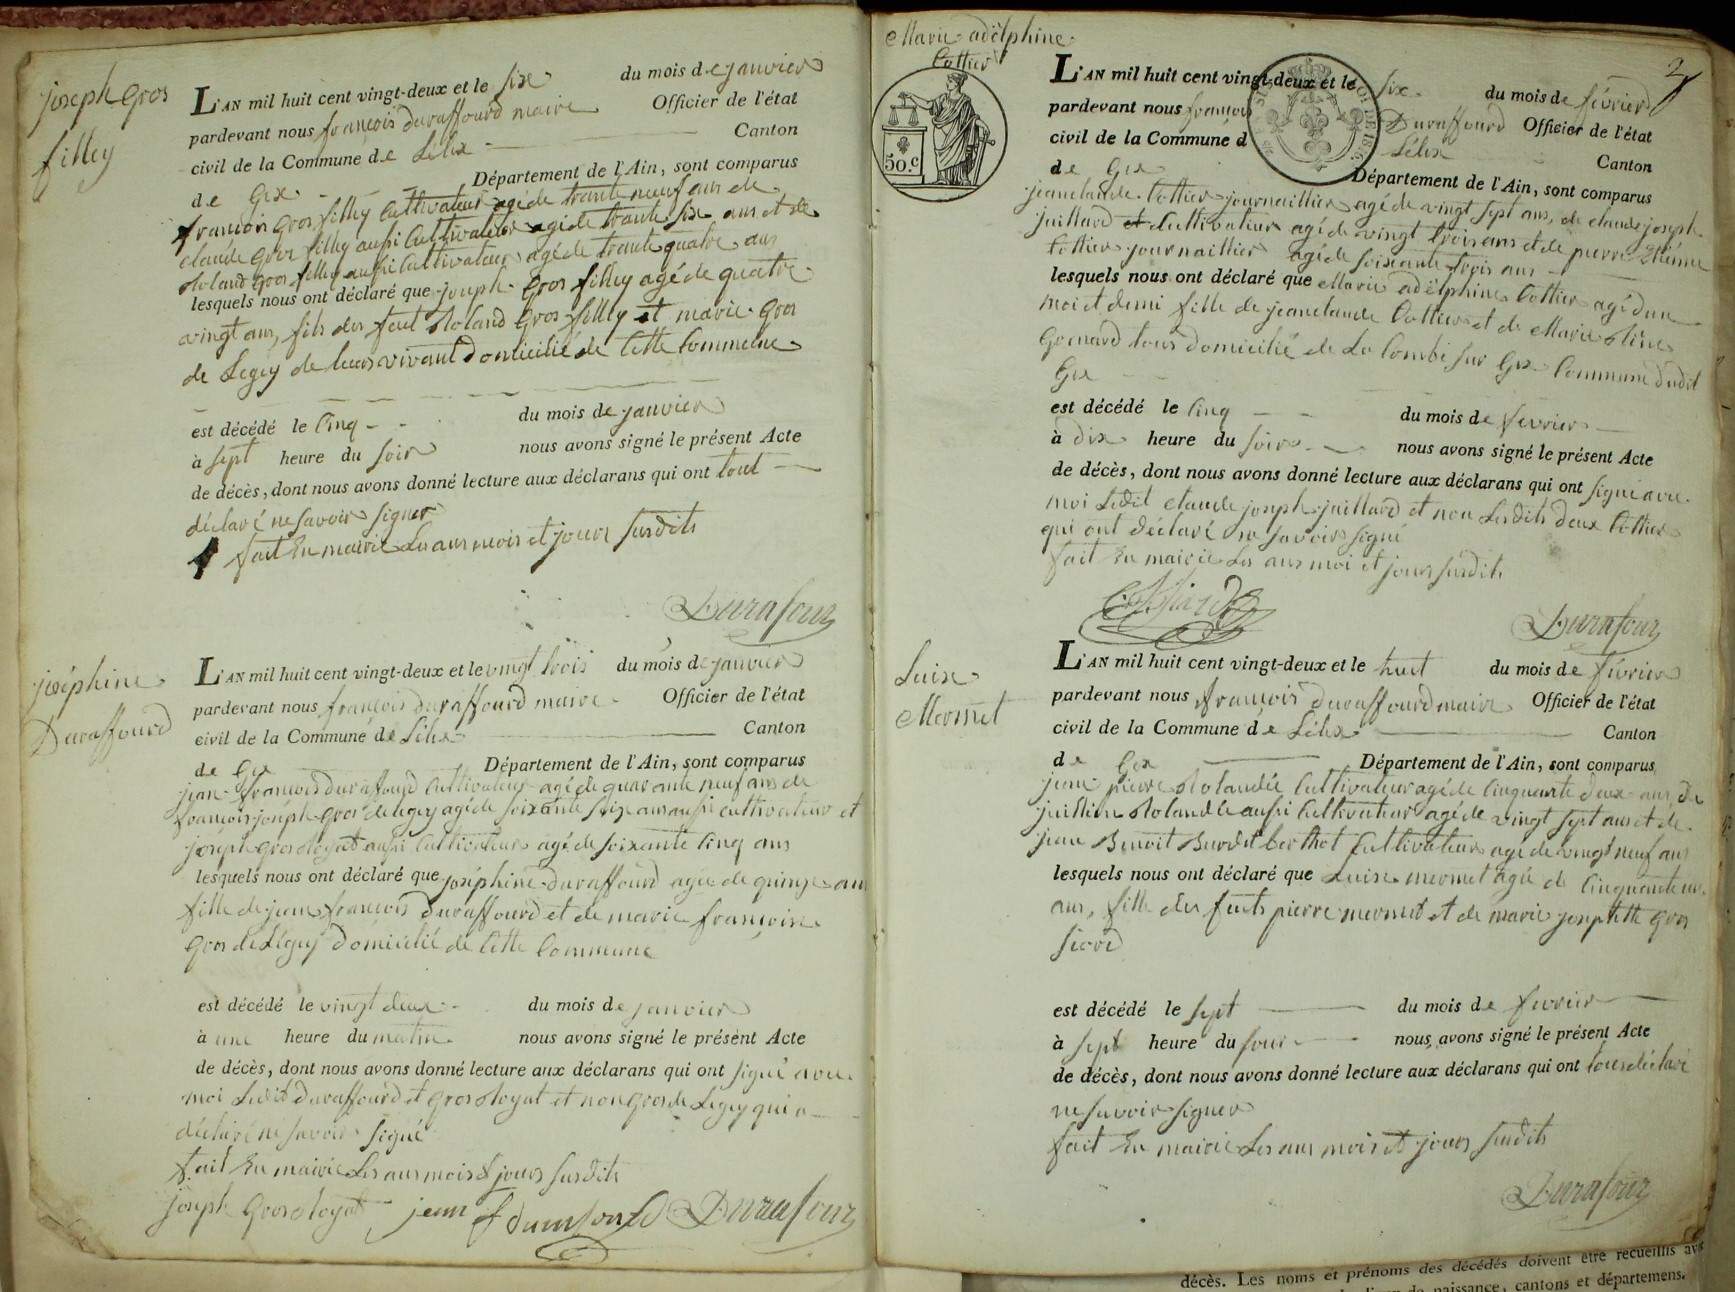 joseph Gros
filley
L'AN mil huit cent vingt-deux et le six du mois de janvier
pardevant nous françois duraffourd maire Officier de l'état
civil de la Commune de Lélex Canton
de Gex Département de l'Ain, sont comparus
françois gros filley Cultivateur agé de trante neuf ans de
claude gros filley aussi Cultivateur agé de trante six ans et de
roland gros filley aussi Cultivateur agé de trante quatre ans
lesquels nous ont déclaré que joseph Gros filley agé de quatre
vingt ans, fils des feut roland Gros filley et marie Gros
de Legey de leurs vivant domicilié de Cette Commune
est décédé le Cinq du mois de janvier
à sept heure du soir nous avons signé le présent Acte
de décès, dont nous avons donné lecture aux déclarans qui ont tout
déclaré ne savoir signer
fait En mairie Les ans mois et jours susdits
Durafour
joséphine
Duraffourd
L'AN mil huit cent vingt-deux et le vingt trois du mois de janvier
pardevant nous françois duraffourd maire Officier de l'état
civil de la Commune de Lélex Canton
de Gex Département de l'Ain, sont comparus
jean françois duraffourd Cultivateur agé de quarante neuf ans de
françois joseph gros de legey agé de soixante seize ans aussi cultivateur et
joseph gros royat aussi Cultivateur agé de soixante Cinq ans
lesquels nous ont déclaré que joséphine duraffourd agée de quinze ans
fille de jean françois duraffourd et de marie françoise
Gros de Légey domicilié de Cette Commune
est décédé le vingt deux du mois de janvier
à une heure du matin nous avons signé le présent Acte
de décès, dont nous avons donné lecture aux déclarans qui ont signé avec
moi Ledit duraffourd et gros royat et non gros de Legey qui a
déclaré ne savoir signé
fait En mairie Les ans mois & jours susdits
joseph Gros royat jean f duraffourd Durafour
Marie adélphine
Cottier
2
50.c
L'AN mil huit cent vingt-deux et le six du mois de février
pardevant nous françois Duraffourd Officier de l'état
civil de la Commune d Lélex Canton
de Gex Département de l'Ain, sont comparus
jean claude Cottier journaillier agé de vingt sept ans, de claude joseph
juillard Cultivateur agé de vingt trois ans et de pierre Etienne
Cottier journaillier agé de soixante trois ans
lesquels nous ont déclaré que Marie adélphine Cottier agé d'un
moi et demi fille de jean claude Cottier et de Marie
Grenard tous domicilié de La Combe sur Gex Commune dudit
Gex
est décédé le Cinq du mois de février
à dix heure du soir nous avons signé le présent Acte
de décès, dont nous avons donné lecture aux déclarans qui ont signé avec
moi Ledit claude joseph juillard et non Lesdits deux Cottier
qui ont déclaré ne savoir signé
fait En mairie Les ans moi et jours susdits
Durafour
Luise
Mermet
L'AN mil huit cent vingt-deux et le huit du mois de février
pardevant nous françois duraffourd maire Officier de l'état
civil de la Commune de Lélex Canton
de Gex Département de l'Ain, sont comparus
jean pierre Cultivateur agé de Cinquante deux ans, de
aussi Cultivateur agé de vingt sept ans et de
jean Benoit Burdet berthet Cultivateur agé de vingt neuf ans
lesquels nous ont déclaré que Luise mermet agée de Cinquante
ans, fille des feuts pierre mermet et de marie josephette Gros
est décédé le sept du mois de février
à sept heure du nous avons signé le présent Acte
de décès, dont nous avons donné lecture aux déclarans qui ont tous déclaré
ne savoir signer
fait En mairie Les ans mois et jours susdits
Durafour
décès. Les noms et prénoms des décédés doivent être recueillis
naissance, cantons et départemens.